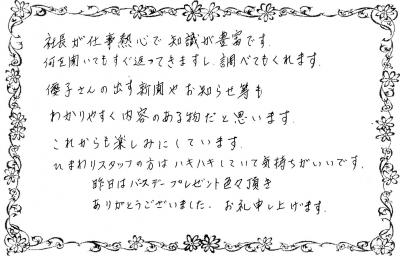 社長が仕事熱心で知識が豊富です。
何を聞いてもすぐ返ってきますし、調べてもくれます。
優子さんの出す新聞やお知らせ等も
わかりやすく内容のある物だと思います。
これからも楽しみにしています。
ひまわりスタッフの方はハキハキしていて気持ちがいいです。
昨日はバースデープレゼント色々頂き
ありがとうございました。お礼申し上げます。